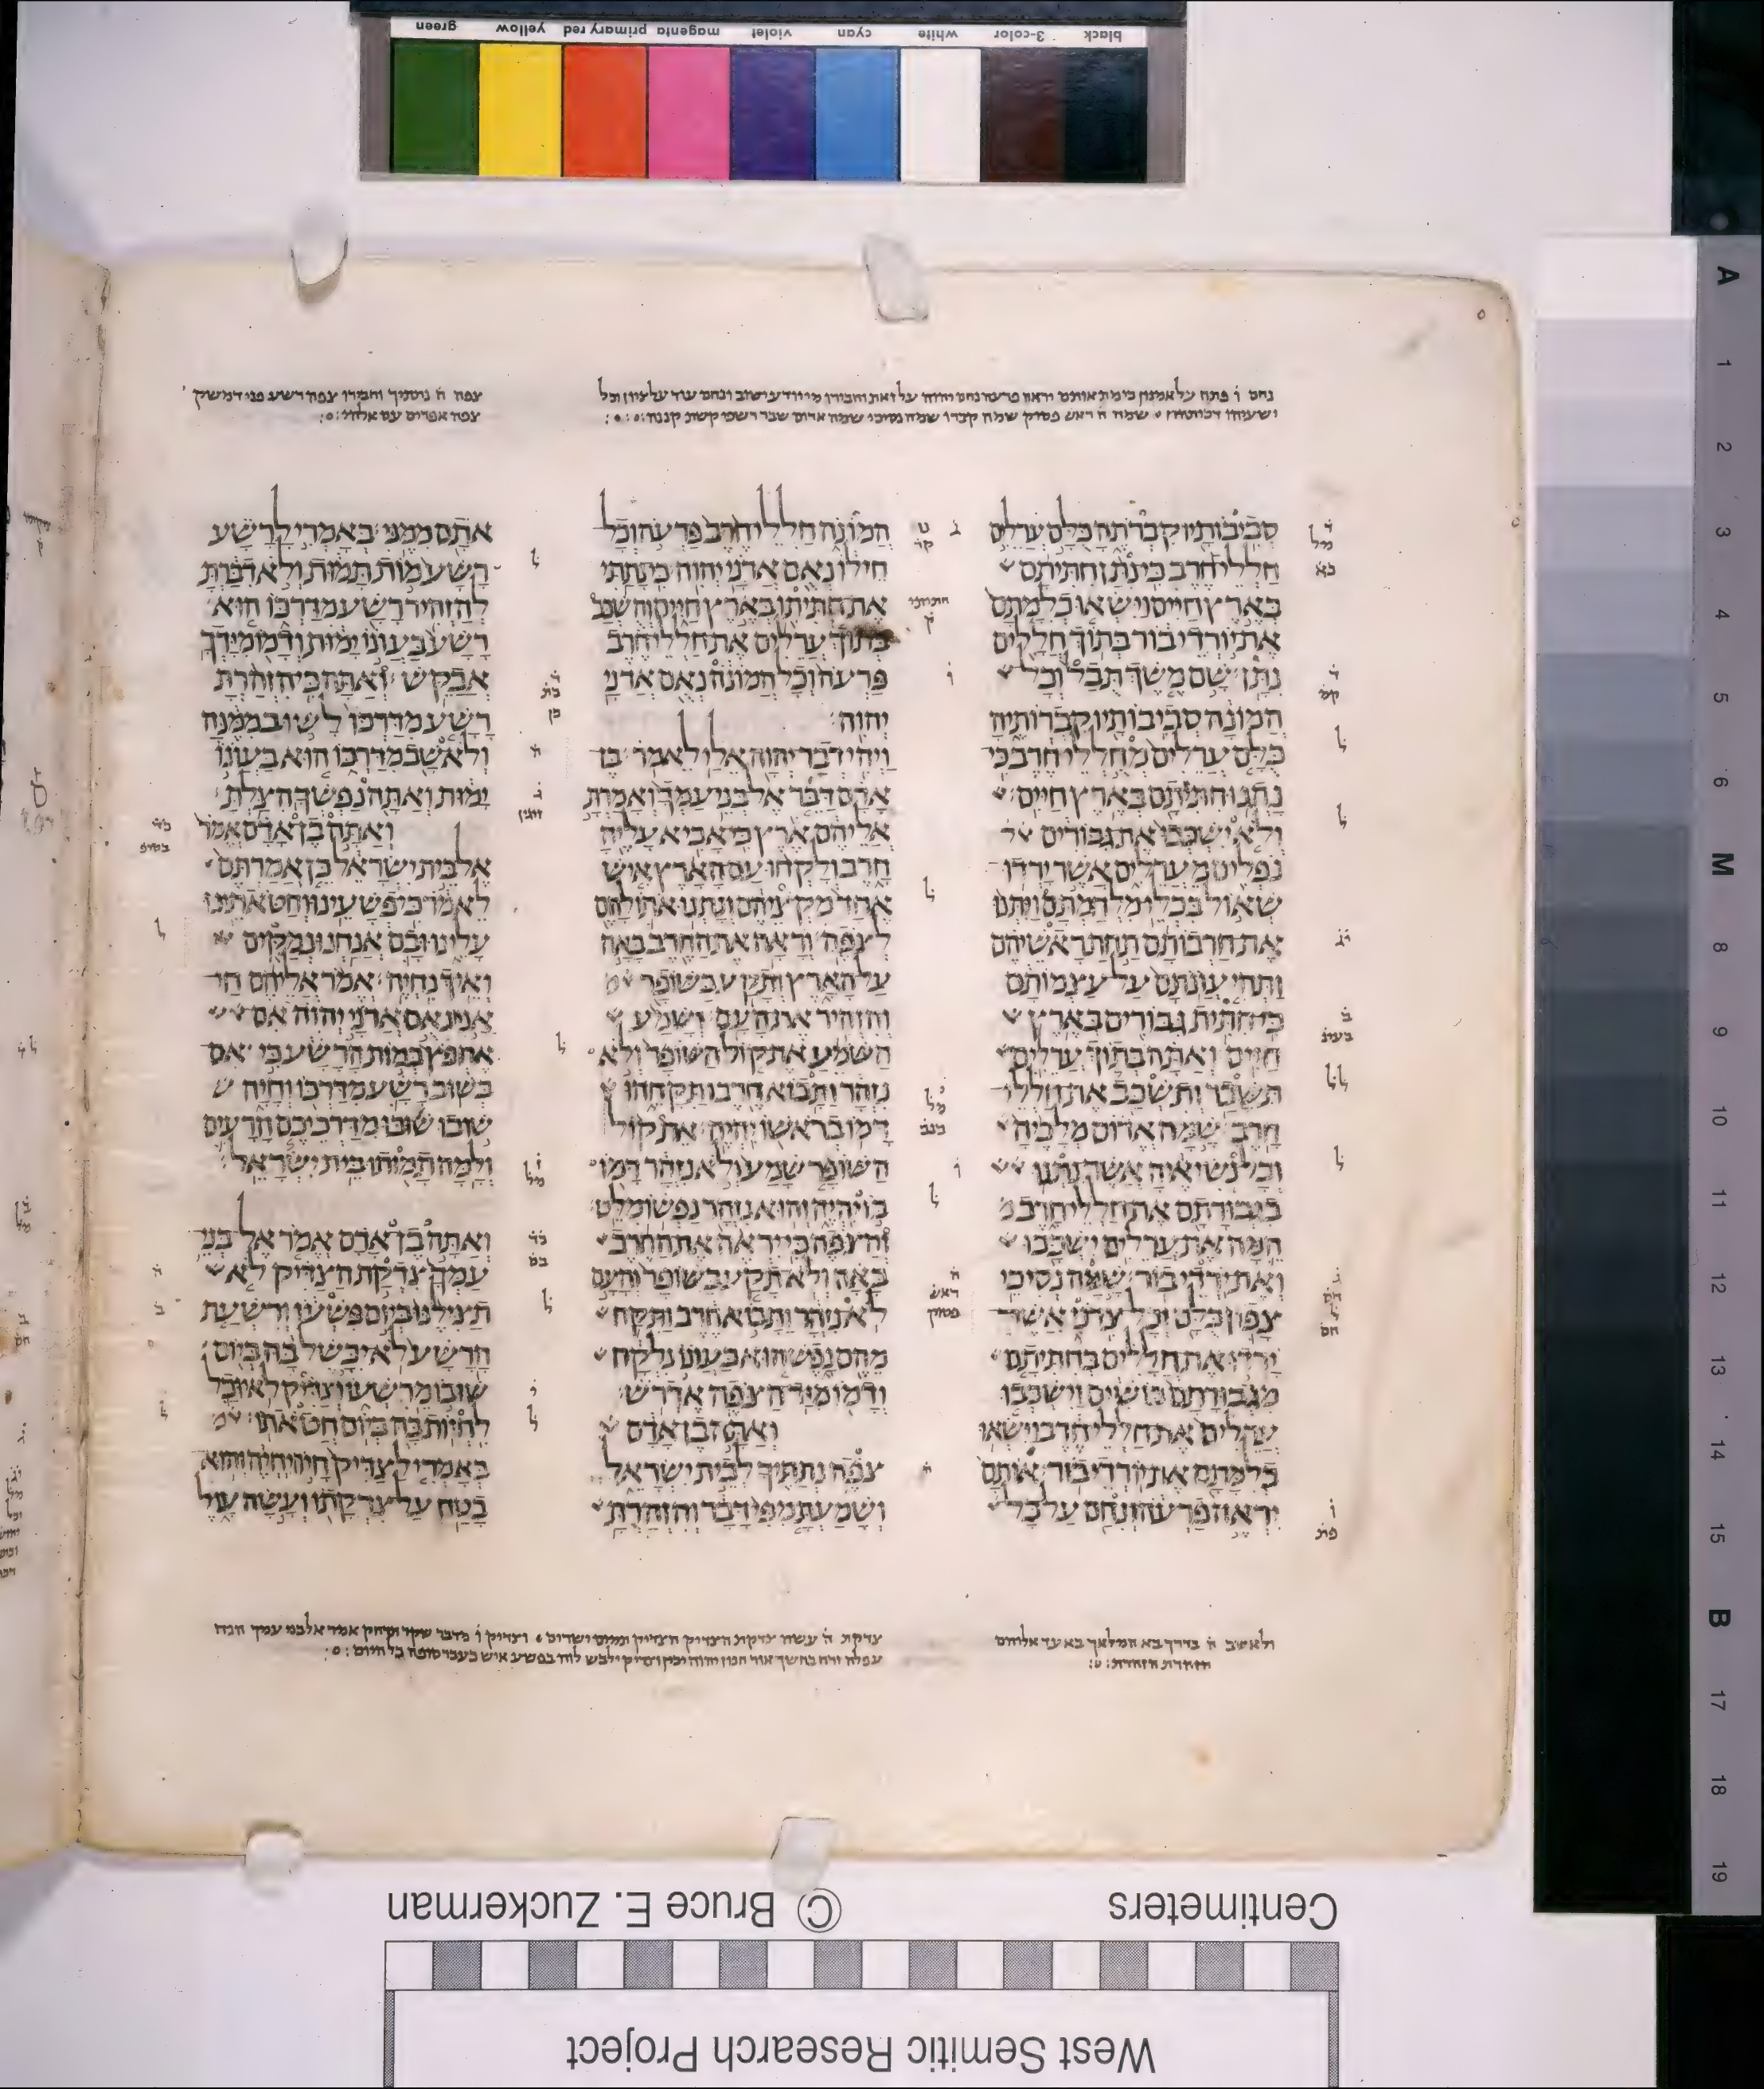 נחם ו֗ פתח על אמנון כי מת אותם יראה פרעה נחם יהוה על זאת
צפה ה֗ נתתיך
צפה אפרים עם אלהי
סביבותיו קברתה כלם ערלים
חללי חרב כי נתן חתיתם
בארץ חיים וישאו כלמתם
את יורדי בור בתוך חללים
נתן שם משך תבל וכל
המונה סביבותיו קברותיה
כלם ערלים מחללי חרב כי
נתנו חתיתם בארץ חיים
ולא ישכבו את גבורים
נפלים מערלים אשר ירדו
שאול בכלי מלחמתם ויתנו
את חרבותם תחת ראשיהם
ותהי עונתם על עצמותם
כי חתית גבורים בארץ
חיים ואתה בתוך ערלים
תשבר ותשכב את חללי
חרב שמה אדום מלכיה
וכל נשיאיה אשר נתנו
בגבורתם את חללי חרב
המה את ערלים ישכבו
ואת ירדי בור שמה נסיכי
צפון כלם וכל צדני אשר
ירדו את חללים בחתיתם
מגבורתם בושים וישכבו
ערלים את חללי חרב וישאו
כלמתם את יורדי בור אותם
יראה פרעה ונחם על כל
המונה חללי חרב פרעה וכל
חילו נאם אדני יהוה כי נתתי
את חתיתו בארץ חיים והשכב
בתוך ערלים את חללי חרב
פרעה וכל המונה נאם אדני
יהוה
ויהי דבר יהוה אלי לאמר בן
אדם דבר אל בני עמך ואמרת
אליהם ארץ כי אביא עליה
חרב ולקחו עם הארץ איש
אחד מקציהם ונתנו אתו להם
לצפה וראה את החרב באה
על הארץ ותקע בשופר
והזהיר את העם ושמע
השמע את קול השופר ולא
נזהר ותבוא חרב ותקחהו
דמו בראשו יהיה את קול
השופר שמע ולא נזהר דמו
בו יהיה והוא נזהר נפשו מלט
והצפה כי יראה את החרב
באה ולא תקע בשופר והעם
לא נזהר ותבוא חרב ותקח
מהם נפש הוא בעונו נלקח
ודמו מיד הצפה אדרש
ואתה בן אדם
צפה נתתיך לבית ישראל
ושמעת מפי דבר והזהרת
אתם ממני באמרי לרשע
רשע מות תמות ולא דברת
להזהיר רשע מדרכו הוא
רשע בעונו ימות ודמו מידך
אבקש ואתה כי הזהרת
רשע מדרכו לשוב ממנה
ולא שב מדרכו הוא בעונו
ימות ואתה נפשך הצלת
ואתה בן אדם אמר
אל בית ישראל כן אמרתם
לאמר כי פשעינו וחטאתינו
עלינו ובם אנחנו נמקים
ואיך נחיה אמר אליהם חי
אני נאם אדני יהוה אם
אחפץ במות הרשע כי אם
בשוב רשע מדרכו וחיה
שובו שובו מדרכיכם הרעים
ולמה תמותו בית ישראל
ואתה בן אדם אמר אל בני
עמך צדקת הצדיק לא
תצילנו ביום פשעו ורשעת
הרשע לא יכשל בה ביום
שובו מרשעו וצדיק לא יוכל
לחיות בה ביום חטאתו
באמרי לצדיק חיה יחיה והוא
בטח על צדקתו ועשה עול
ולא שב ה֗ בדרך בא המלאך בא עד אלהים
הזהרת הזהרת
צדקת ה֗ עשה צדקת הצדיק
West Semitic Research Project
Centimeters
© Bruce E. Zuckerman
black 3-color white cyan violet magenta primary red yellow green
A 1 2 3 4 5 6 M 8 9 10 11 12 13 14 15 B 17 18 19